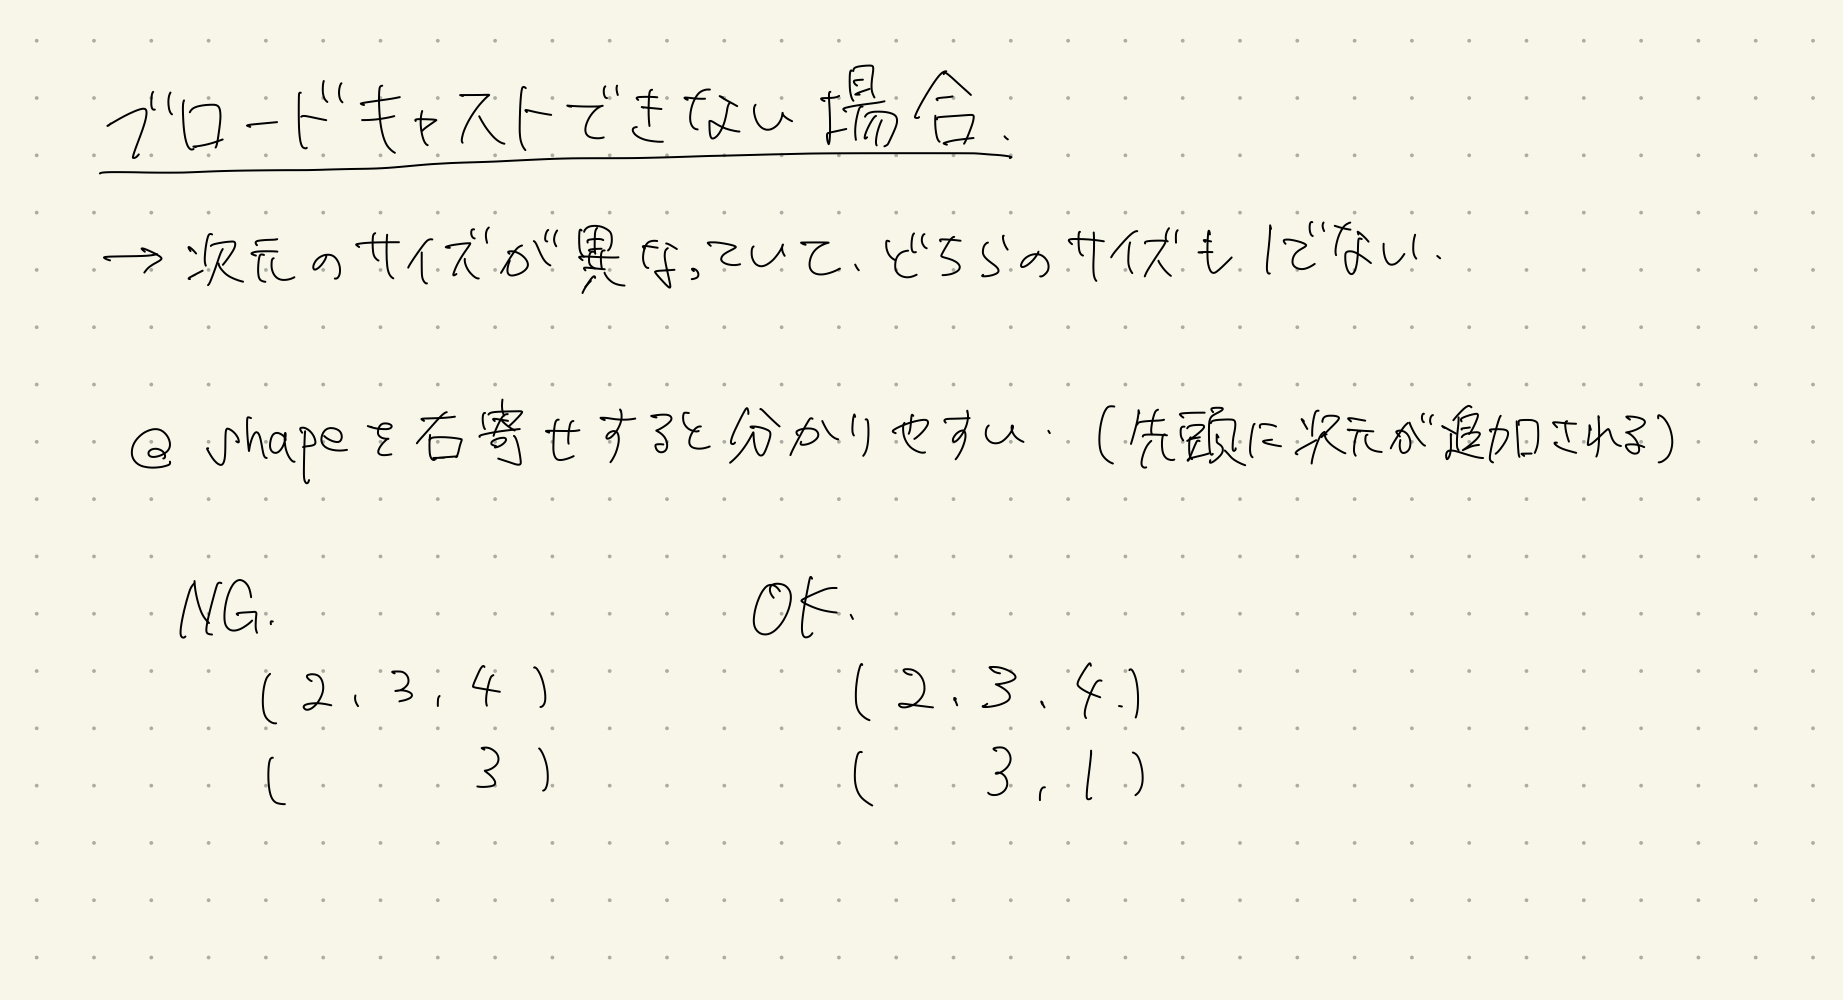 ブロードキャストできない場合.
→ 次元のサイズが異なっていて、どちらのサイズも1でない.
@ shapeを右寄せすると分かりやすい. (先頭に次元が追加される)
NG. OK.
(2, 3, 4) (2, 3, 4.)
( 3 ) ( 3, 1 )